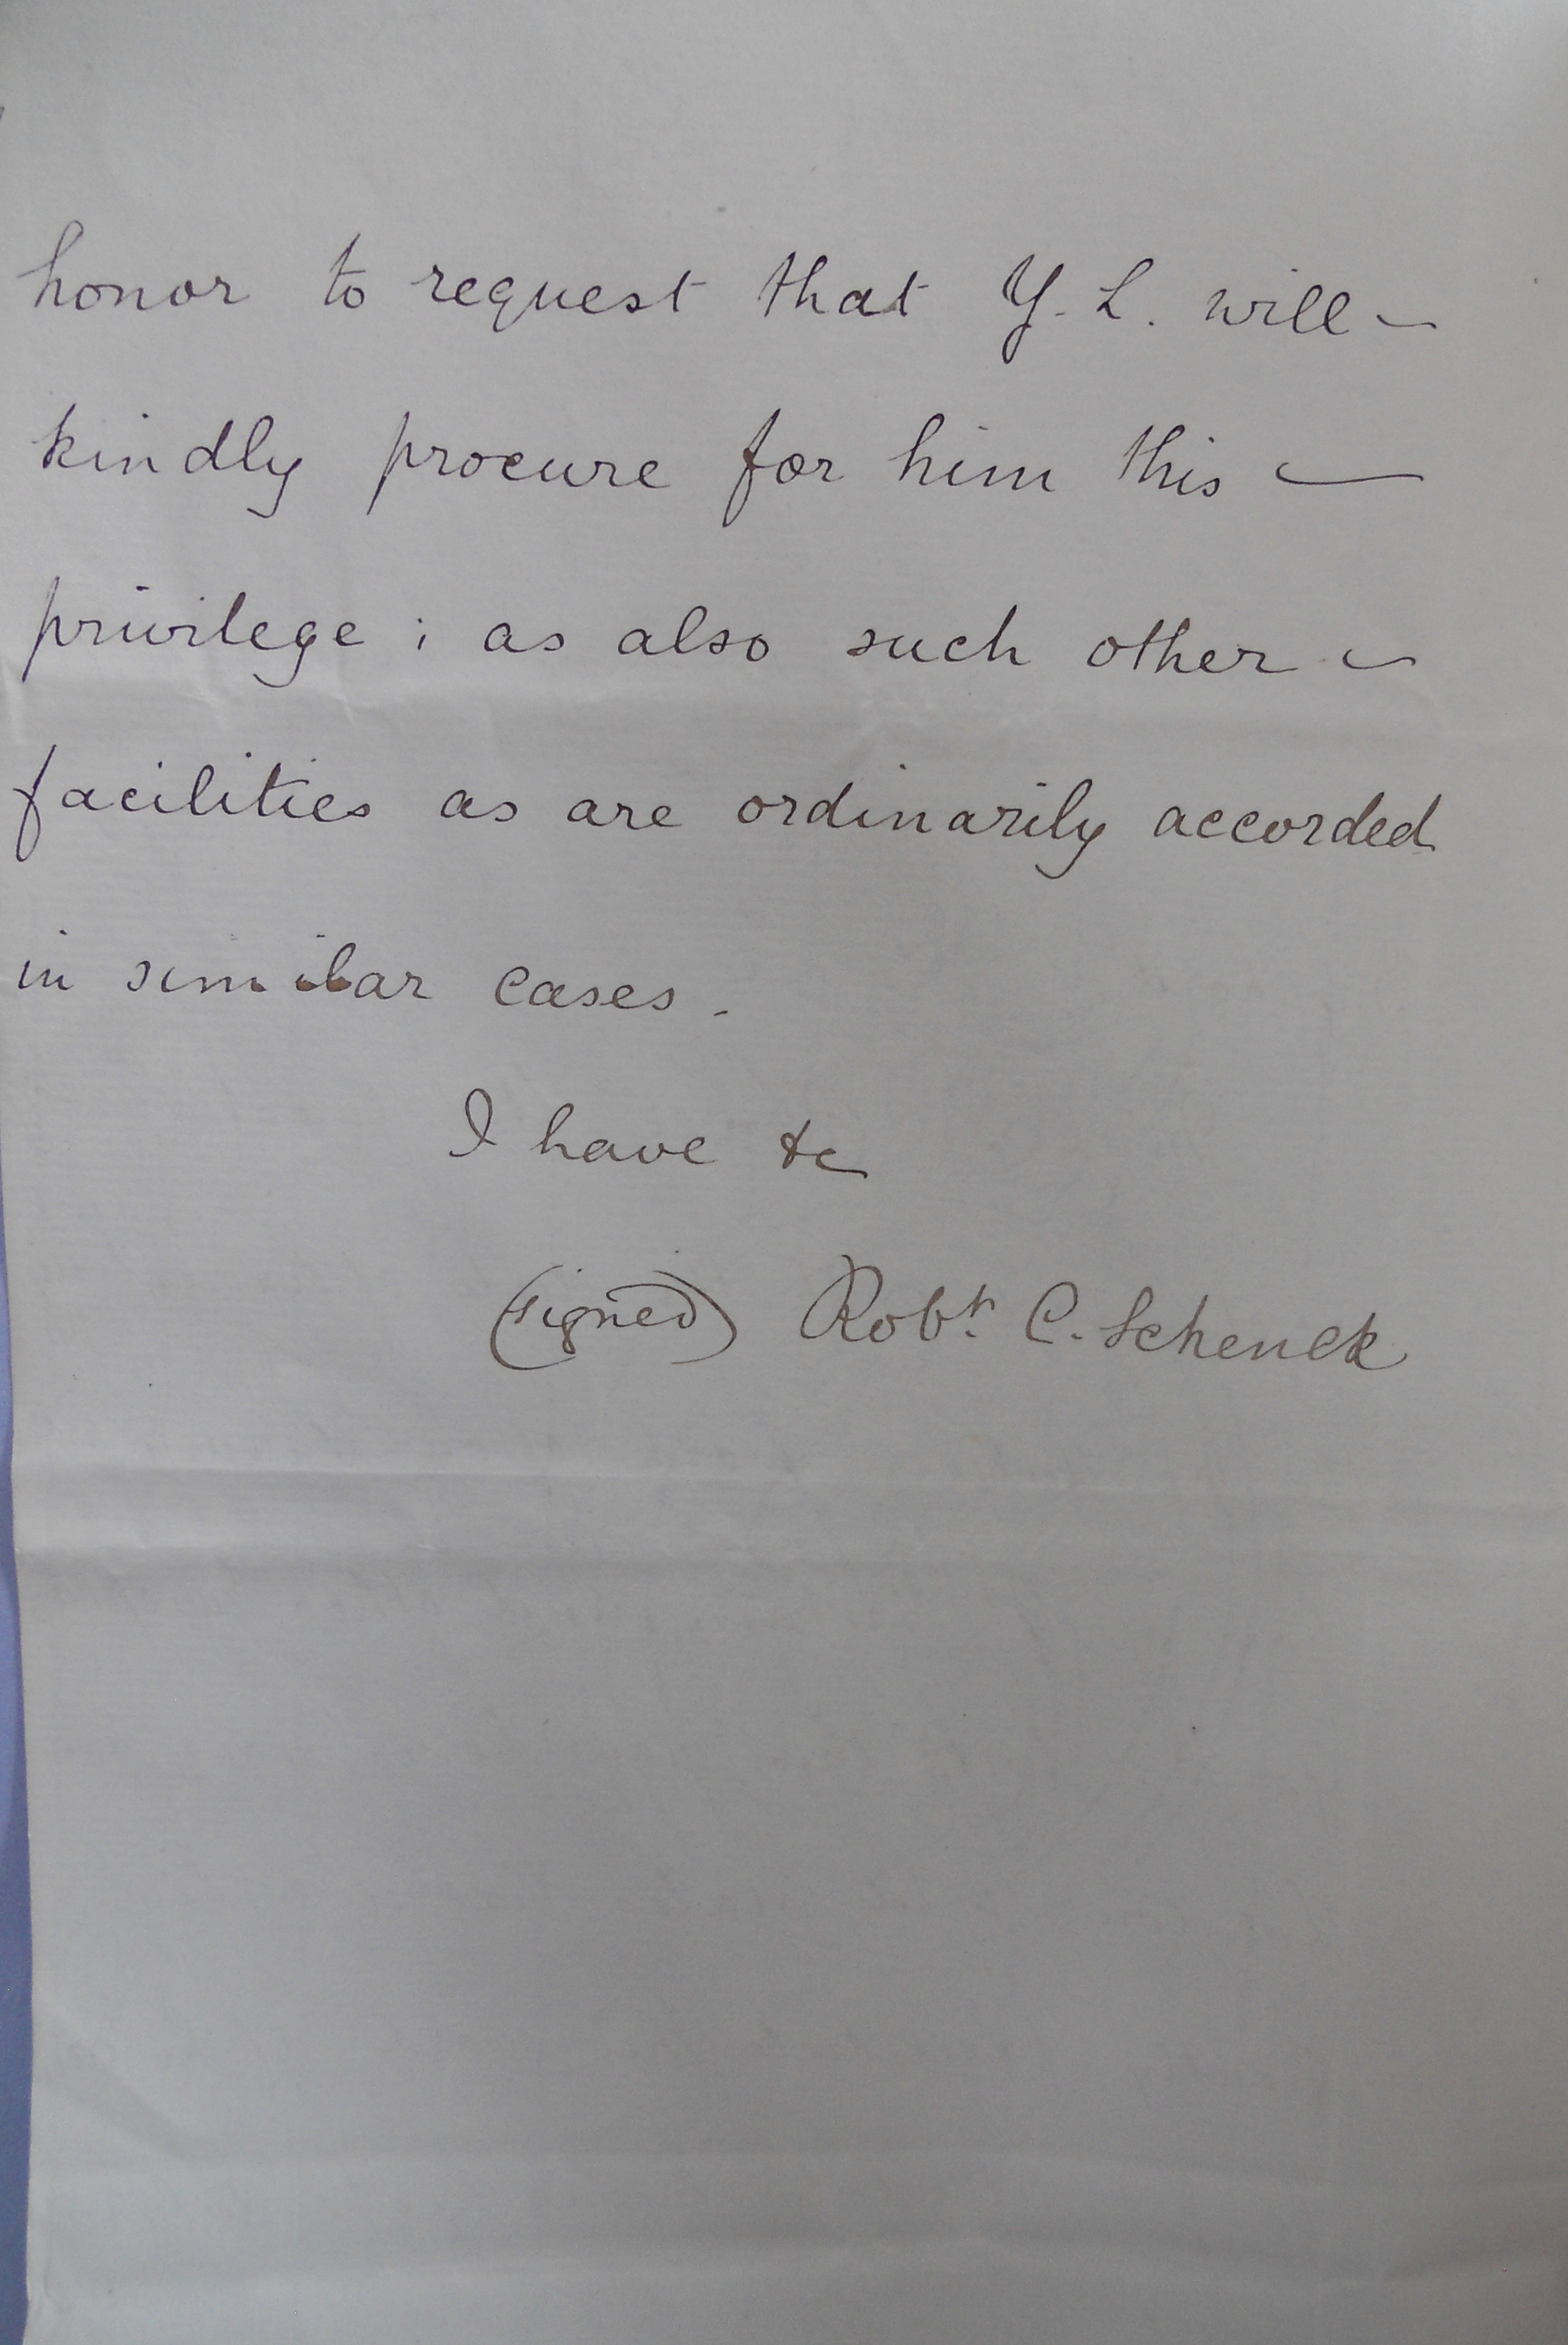 honor to request that Y. L. will –
kindly procure for him this —
privilege ; as also such other –
facilities as are ordinarily accorded
in similar cases.
I have &c
(signed) Robt. C. Schenck